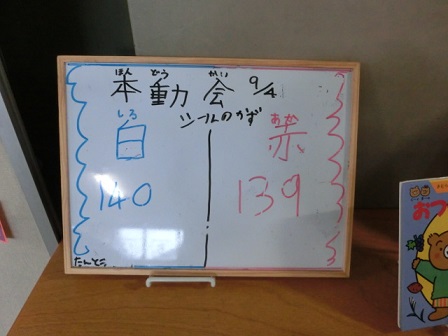 ほん どう かい
本動会 9/4
シールのかず
しろ
白
140
あか
赤
139
たんとう
おつ